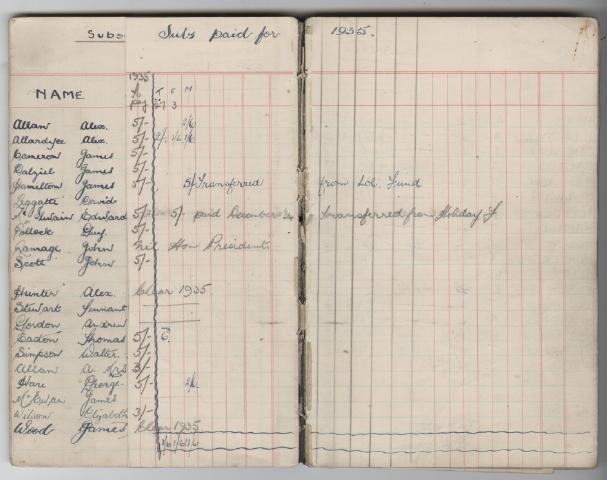 Subs Subs paid for 1935.
1935
NAME J F M
Allan Alex. 5/- 2/6
Allardyce Alex. 5/- 2/- 1/6 1/6
Cameron James 5/-
Dalziel James 5/-
Hamilton James 5/- 5/- Transferred from Lit. Fund
Leggatt David
McSwain Edward 5/- 5/- paid December transferred from Holiday F
Pollock Guy. 5/-
Ramage John nil Hon President.
Scott John 5/-
Hunter Alex. Clear 1935
Stewart Tennant
Gordon Andrew
Eadon Thomas 5/- 6.
Simpson Walter. 5/-
Allan A. Mrs 3/-
Hare George. 5/- 2/6
McEwan James
Wilson Elizabeth 3/-
Wood James Clear 1935